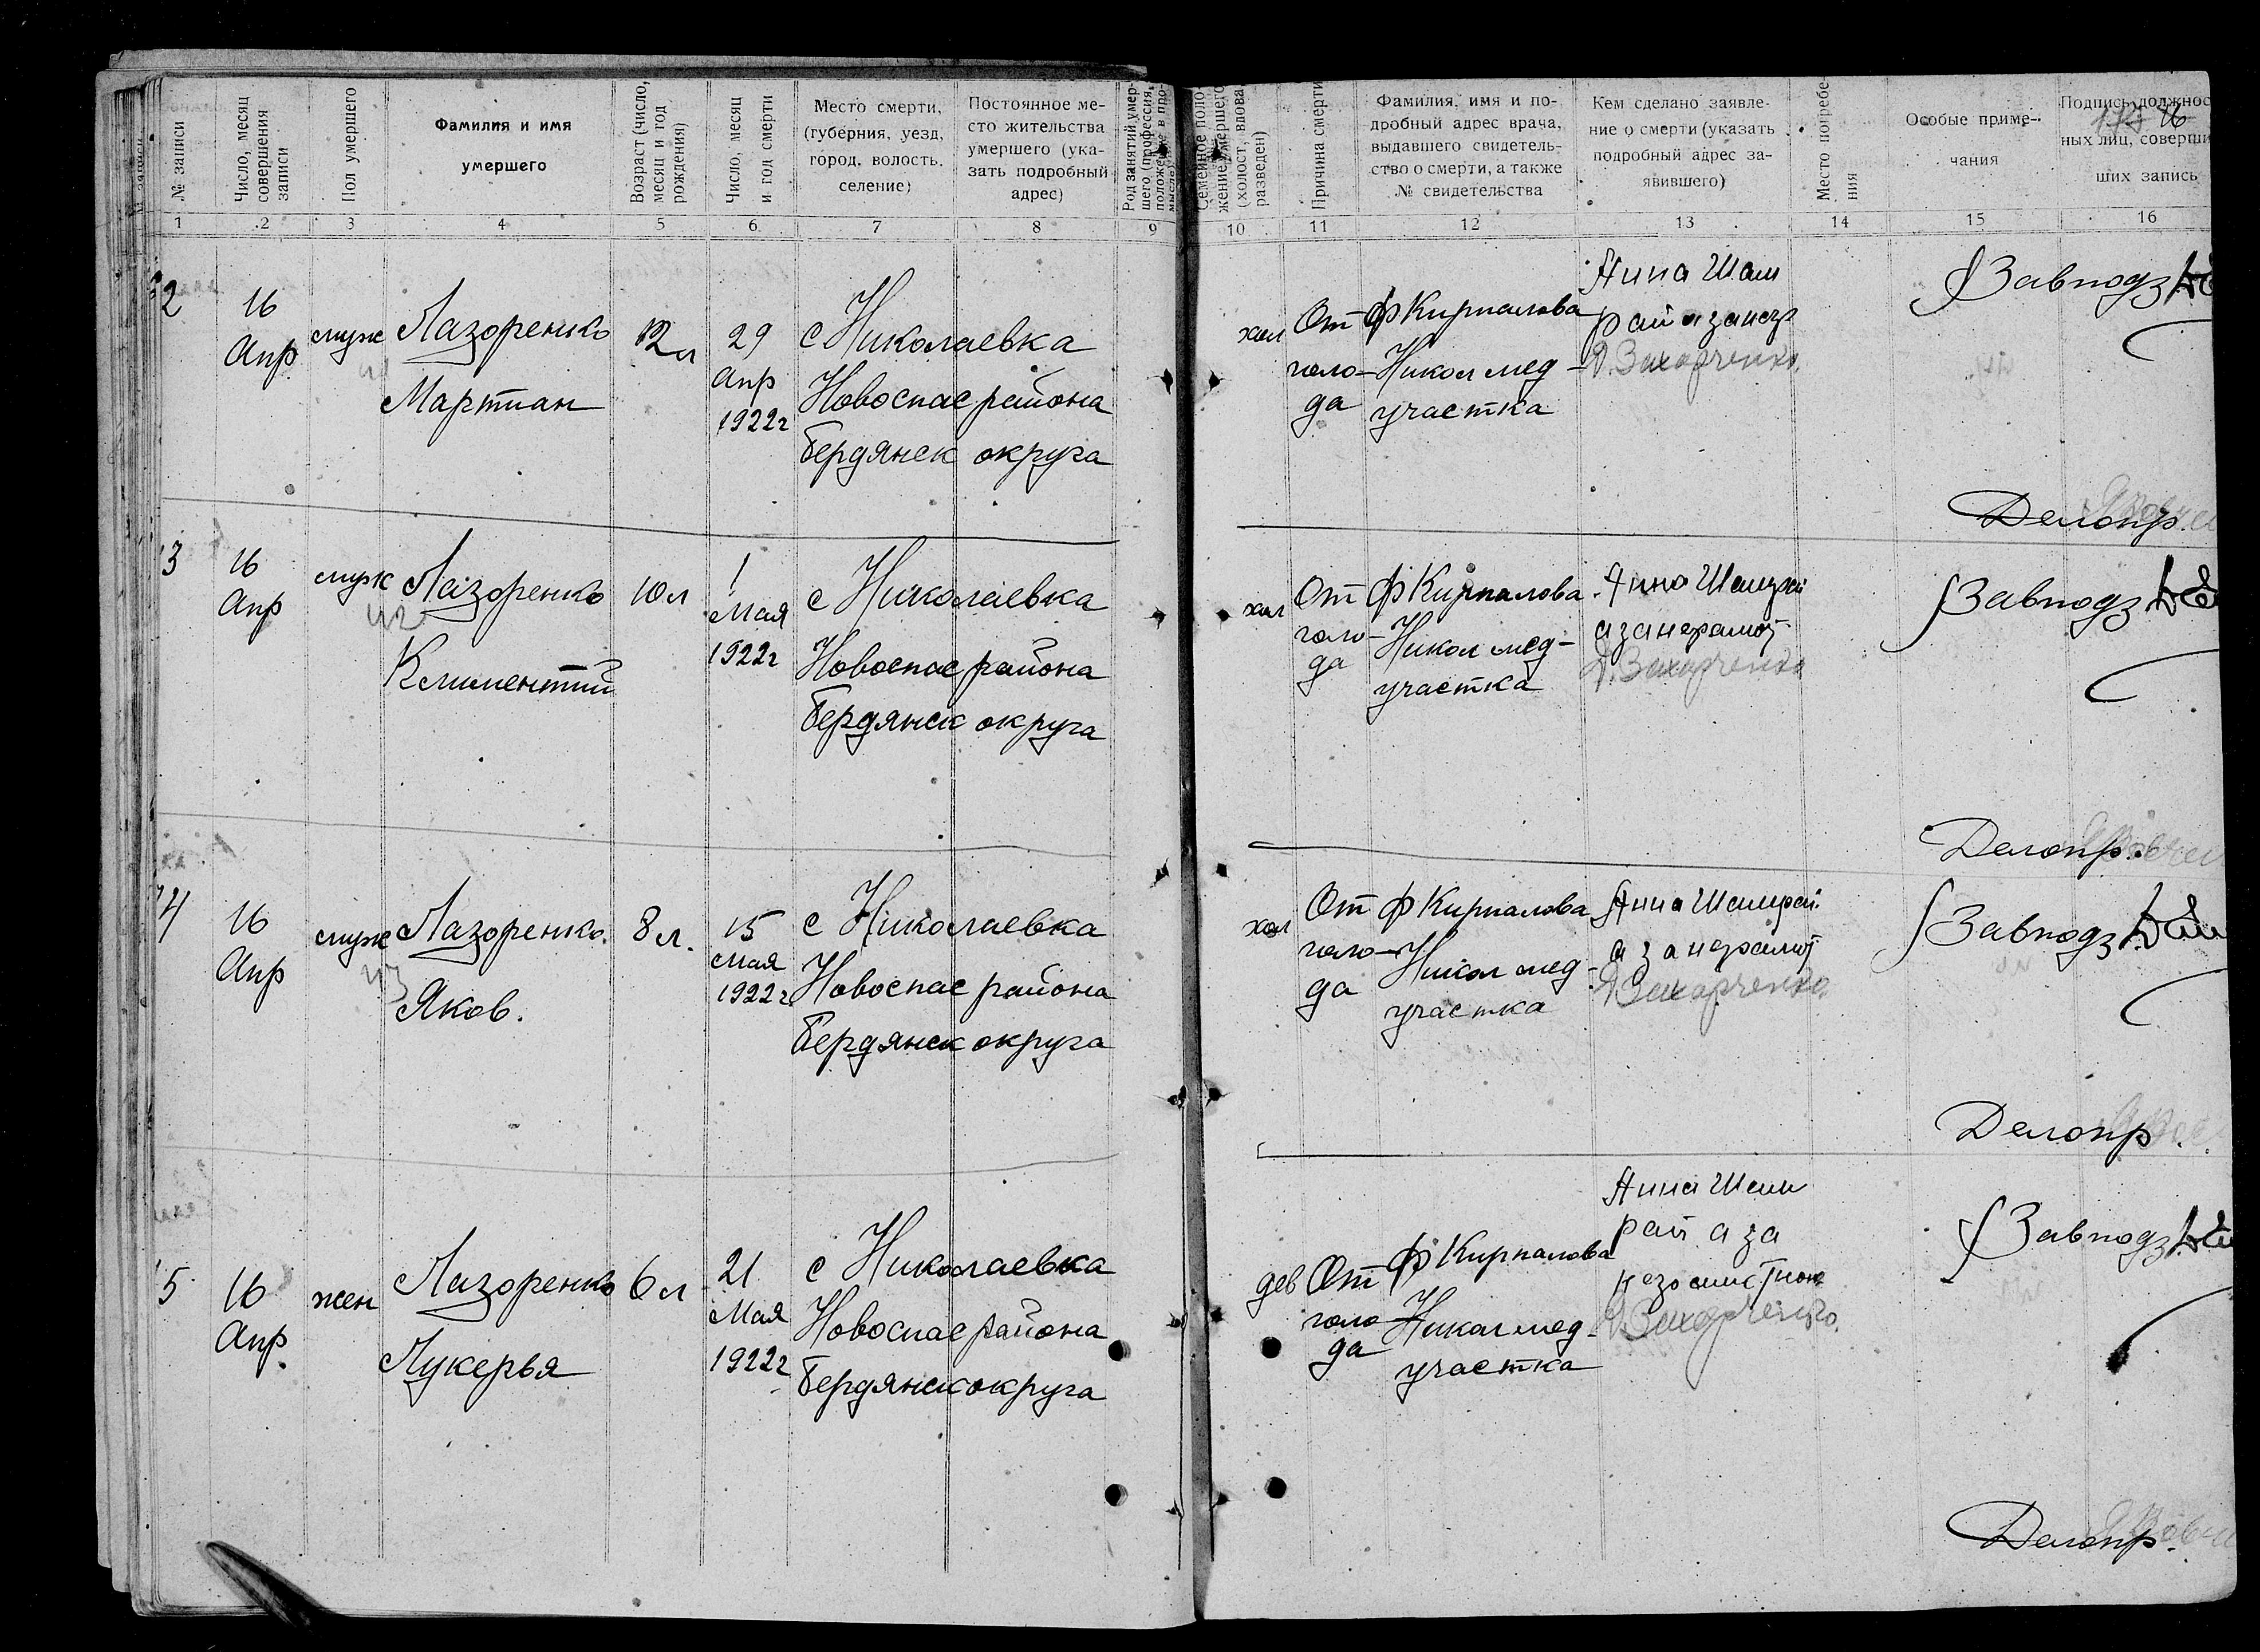 № записи
Число, месяц
совершения
записи
Пол умершего
Фамилия и имя
умершего
Возраст (число,
месяц и год
рождения)
Число, месяц
и год смерти
Место смерти,
(губерния, уезд,
город, волость,
селение)
Постоянное ме-
сто жительства
умершего (ука-
зать подробный
адрес)
Род занятий умер-
шего (профессия,
положение в про-
Семейное поло-
жение умершего
(холост, вдова
разведен)
Причина смерти
Фамилия, имя и по-
дробный адрес врача,
выдавшего свидетель-
ство о смерти, а также
№ свидетельства
Кем сделано заявле-
ние о смерти (указать
подробный адрес за-
явившего)
Место погребе-
ния
Особые приме-
чания
Подпись должнос
ных лиц, соверши
ших запись
1 2 3 4 5 6 7 8 9 10 11 12 13 14 15 16
2
16
Апр
муж
Лазоренко
Мартиан
12 л
29
Апр
1922 г
с Николаевка
Новоспас района
Бердянск округа
хол
От
голо-
да
Ф Кирпалова
Никол мед-
участка
Анна Шам
рай а за негр
Д. Захарченко
Завподз
Делопр.
3
16
Апр
муж
Лазоренко
Климентий
10 л
1
Мая
1922 г
с Николаевка
Новоспас района
Бердянск округа
хол
От
голо-
да
Ф Кирпалова
Никол мед-
участка
Анна Шамрай
а за неграмот
Д. Захарченко
Завподз
Делопр.
4
16
Апр
муж
Лазоренко.
Яков.
8 л.
15
Мая
1922 г
с Николаевка
Новоспас района
Бердянск округа
хол
От
голо-
да
Ф Кирпалова
Никол мед-
участка
Анна Шамрай
а за неграмот
Д. Захарченко
Завподз
Делопр.
5
16
Апр.
жен
Лазоренко
Лукерья
6 л
21
Мая
1922 г
с Николаевка
Новоспас района
Бердянск округа
дев
От
голо
да
Ф Кирпалова
Никол мед-
участка
Анна Шам
рай а за
Д. Захарченко.
Завподз
Делопр.